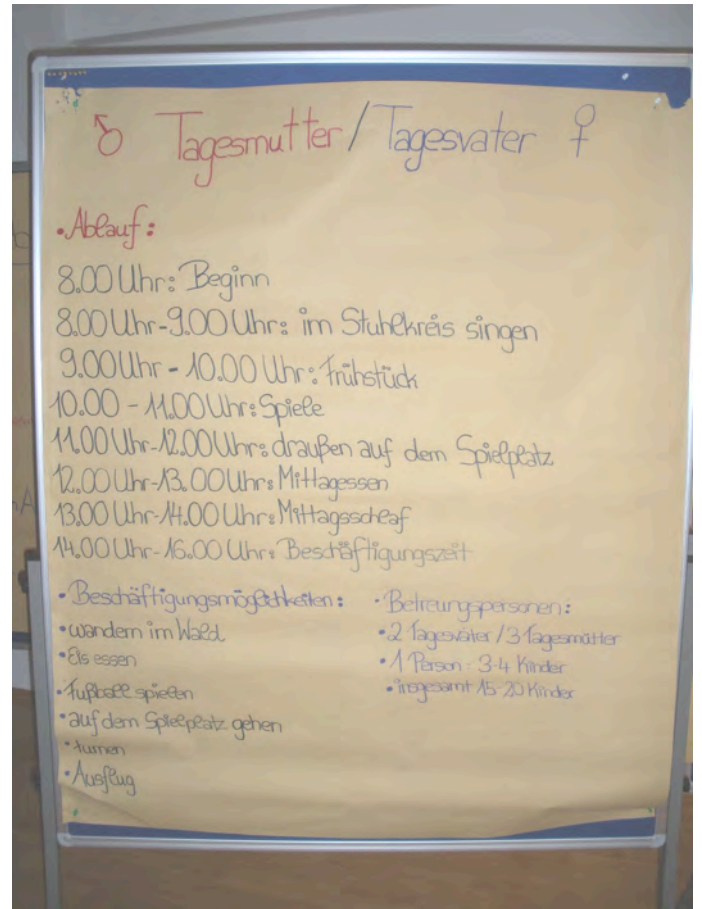 ♂ Tagesmutter / Tagesvater ♀
• Ablauf:
8.00 Uhr: Beginn
8.00 Uhr - 9.00 Uhr: im Stuhlkreis singen
9.00 Uhr - 10.00 Uhr: Frühstück
10.00 - 11.00 Uhr: Spiele
11.00 Uhr - 12.00 Uhr: draußen auf dem Spielplatz
12.00 Uhr - 13.00 Uhr: Mittagessen
13.00 Uhr - 14.00 Uhr: Mittagsschlaf
14.00 Uhr - 16.00 Uhr: Beschäftigungszeit
• Beschäftigungsmöglichkeiten:
• wandern im Wald
• Eis essen
• Fußball spielen
• auf dem Spielplatz gehen
• turnen
• Ausflug
• Betreungspersonen:
• 2 Tagesväter / 3 Tagesmütter
• 1 Person: 3-4 Kinder
• insgesamt 15-20 Kinder